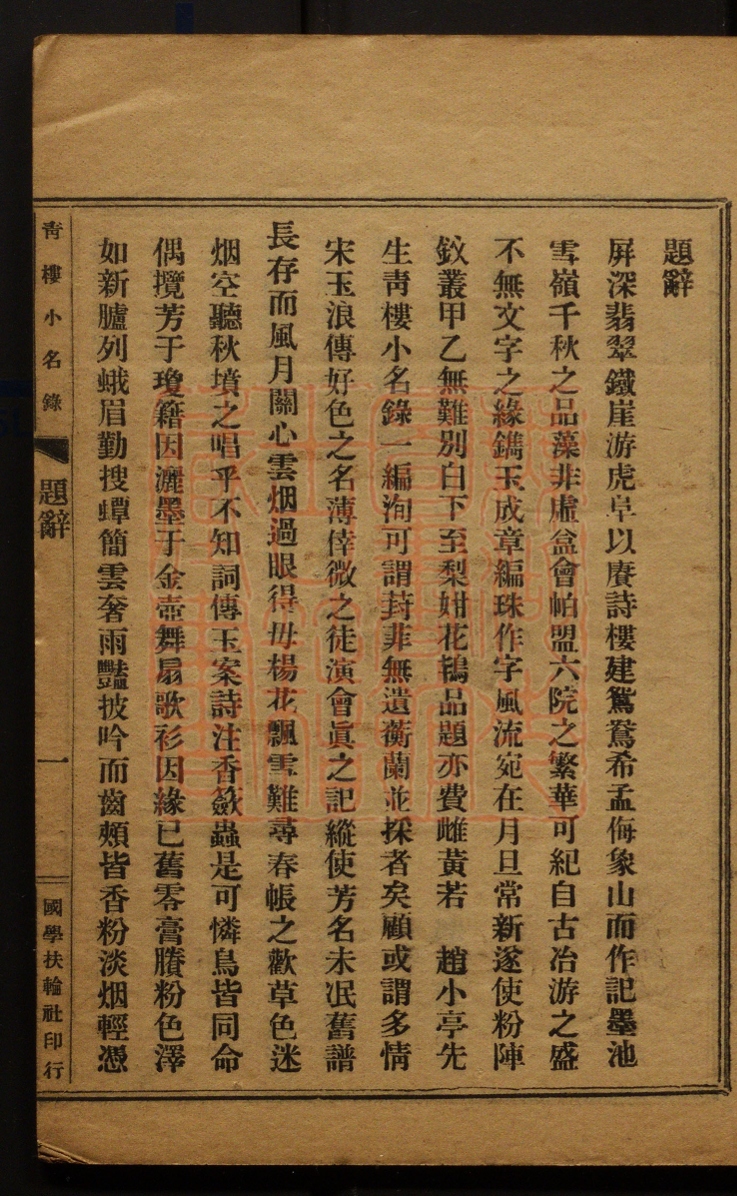 題辭
屛深翡翠鐵崖游虎阜以賡詩樓建鴛鴦希孟侮象山而作記墨池
雪嶺千秋之品藻非虛盒會帕盟六院之繁華可紀自古冶游之盛
不無文字之緣鐫玉成章編珠作字風流宛在月旦常新遂使粉陣
釵叢甲乙無難別白下至梨姏花鴇品題亦費雌黃若　趙小亭先
生靑樓小名錄一編洵可謂葑菲無遺蘅蘭並採者矣顧或謂多情
宋玉浪傳好色之名薄倖微之徒演會眞之記縱使芳名未泯舊譜
長存而風月關心雲烟過眼得毋楊花飄雪難尋春帳之歡草色迷
烟空聽秋墳之唱乎不知詞傳玉案詩注香籢蟲是可憐鳥皆同命
偶攬芳于瓊籍因灑墨于金壺舞扇歌衫因緣已舊零膏賸粉色澤
如新臚列蛾眉勤搜蟫簡雲奢雨豔披吟而齒頰皆香粉淡烟輕憑
靑樓小名錄
題辭
一
國學扶輪社印行